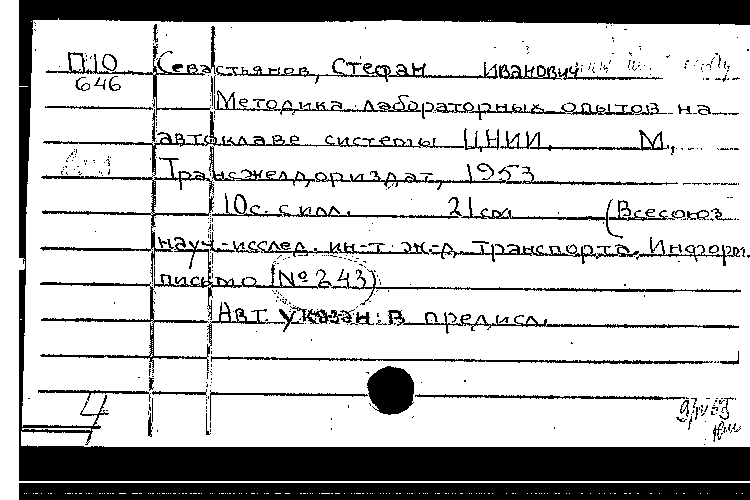 П10 Севастьянов, Стефан Иванович
646
Методика лабораторных опытов на
автоклаве системы ЦНИИ. М.,
Трансжелдориздат, 1953
10с. с илл. 21см (Всесоюз
науч.-исслед. ин-т ж-д. транспорта. Информ.
письмо №243)
Авт. указан: в предисл.
4